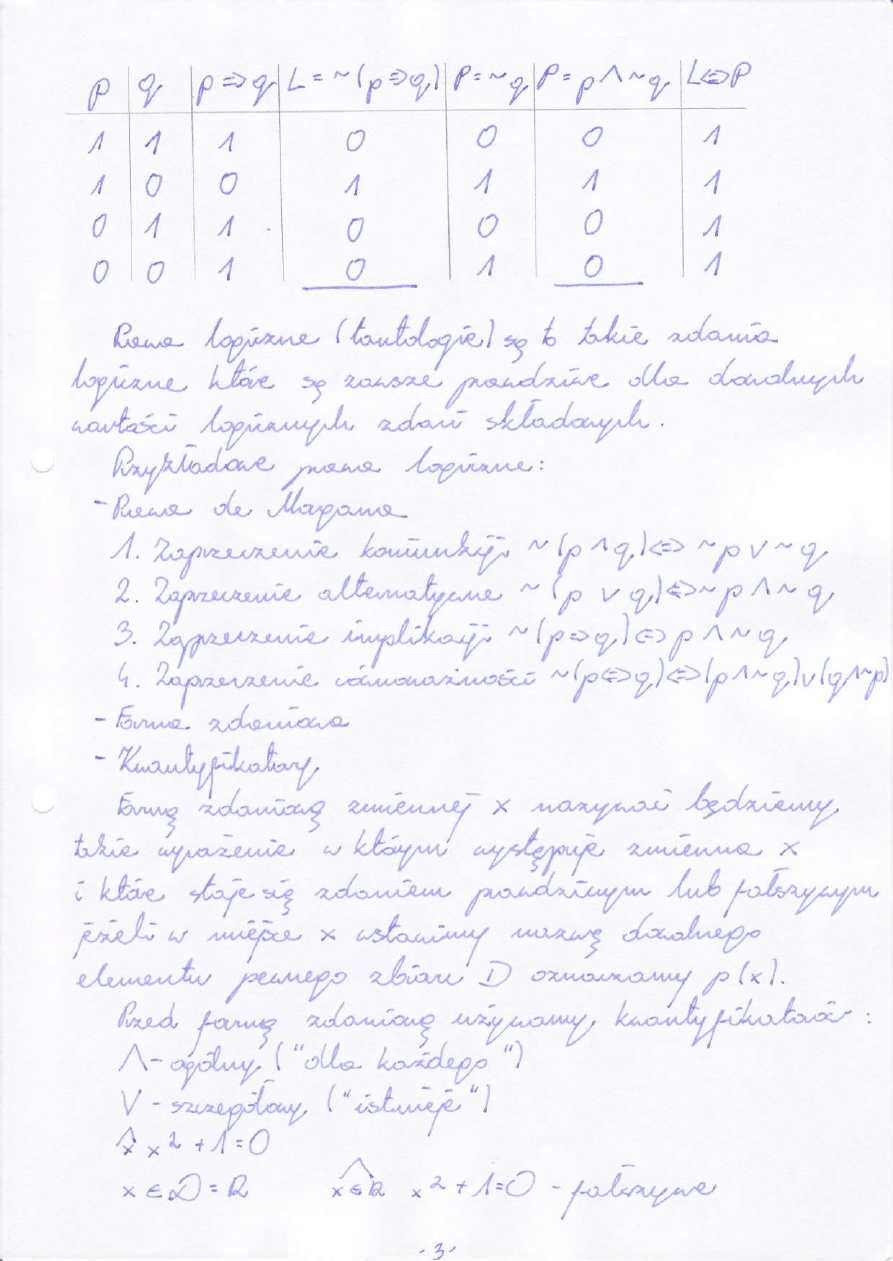 p q p⇒q L=~(p⇒q) P=~q P=p∧~q L⇔P
1 1 1 0 0 0 1
1 0 0 1 1 1 1
0 1 1 0 0 0 1
0 0 1 0 1 0 1
Prawa logiczne (tautologie) są to takie zdania
logiczne które są zawsze prawdziwe dla dowolnych
wartości logicznych zdań składowych.
Przykładowe prawa logiczne:
- Prawa de Morgana
1. Zaprzeczenie koniunkcji ~(p∧q)⇔~p∨~q
2. Zaprzeczenie alternatywne ~(p∨q)⇔~p∧~q
3. Zaprzeczenie implikacji ~(p⇒q)⇔p∧~q
4. Zaprzeczenie równoważności ~(p⇔q)⇔(p∧~q)∨(q∧~p)
- Forma zdaniowa
- Kwantyfikatory
Formą zdaniową zmiennej x nazywać będziemy
takie wyrażenie w którym występuje zmienna x
i które staje się zdaniem prawdziwym lub fałszywym
jeżeli w miejsce x wstawimy nazwę dowolnego
elementu pewnego zbioru D oznaczamy p(x).
Przed formą zdaniową używamy kwantyfikatorów:
∧ - ogólny ("dla każdego")
∨ - szczegółowy ("istnieje")
∧x x²+1=0
x∈D=R ∧x∈R x²+1=0 - fałszywe
-3-